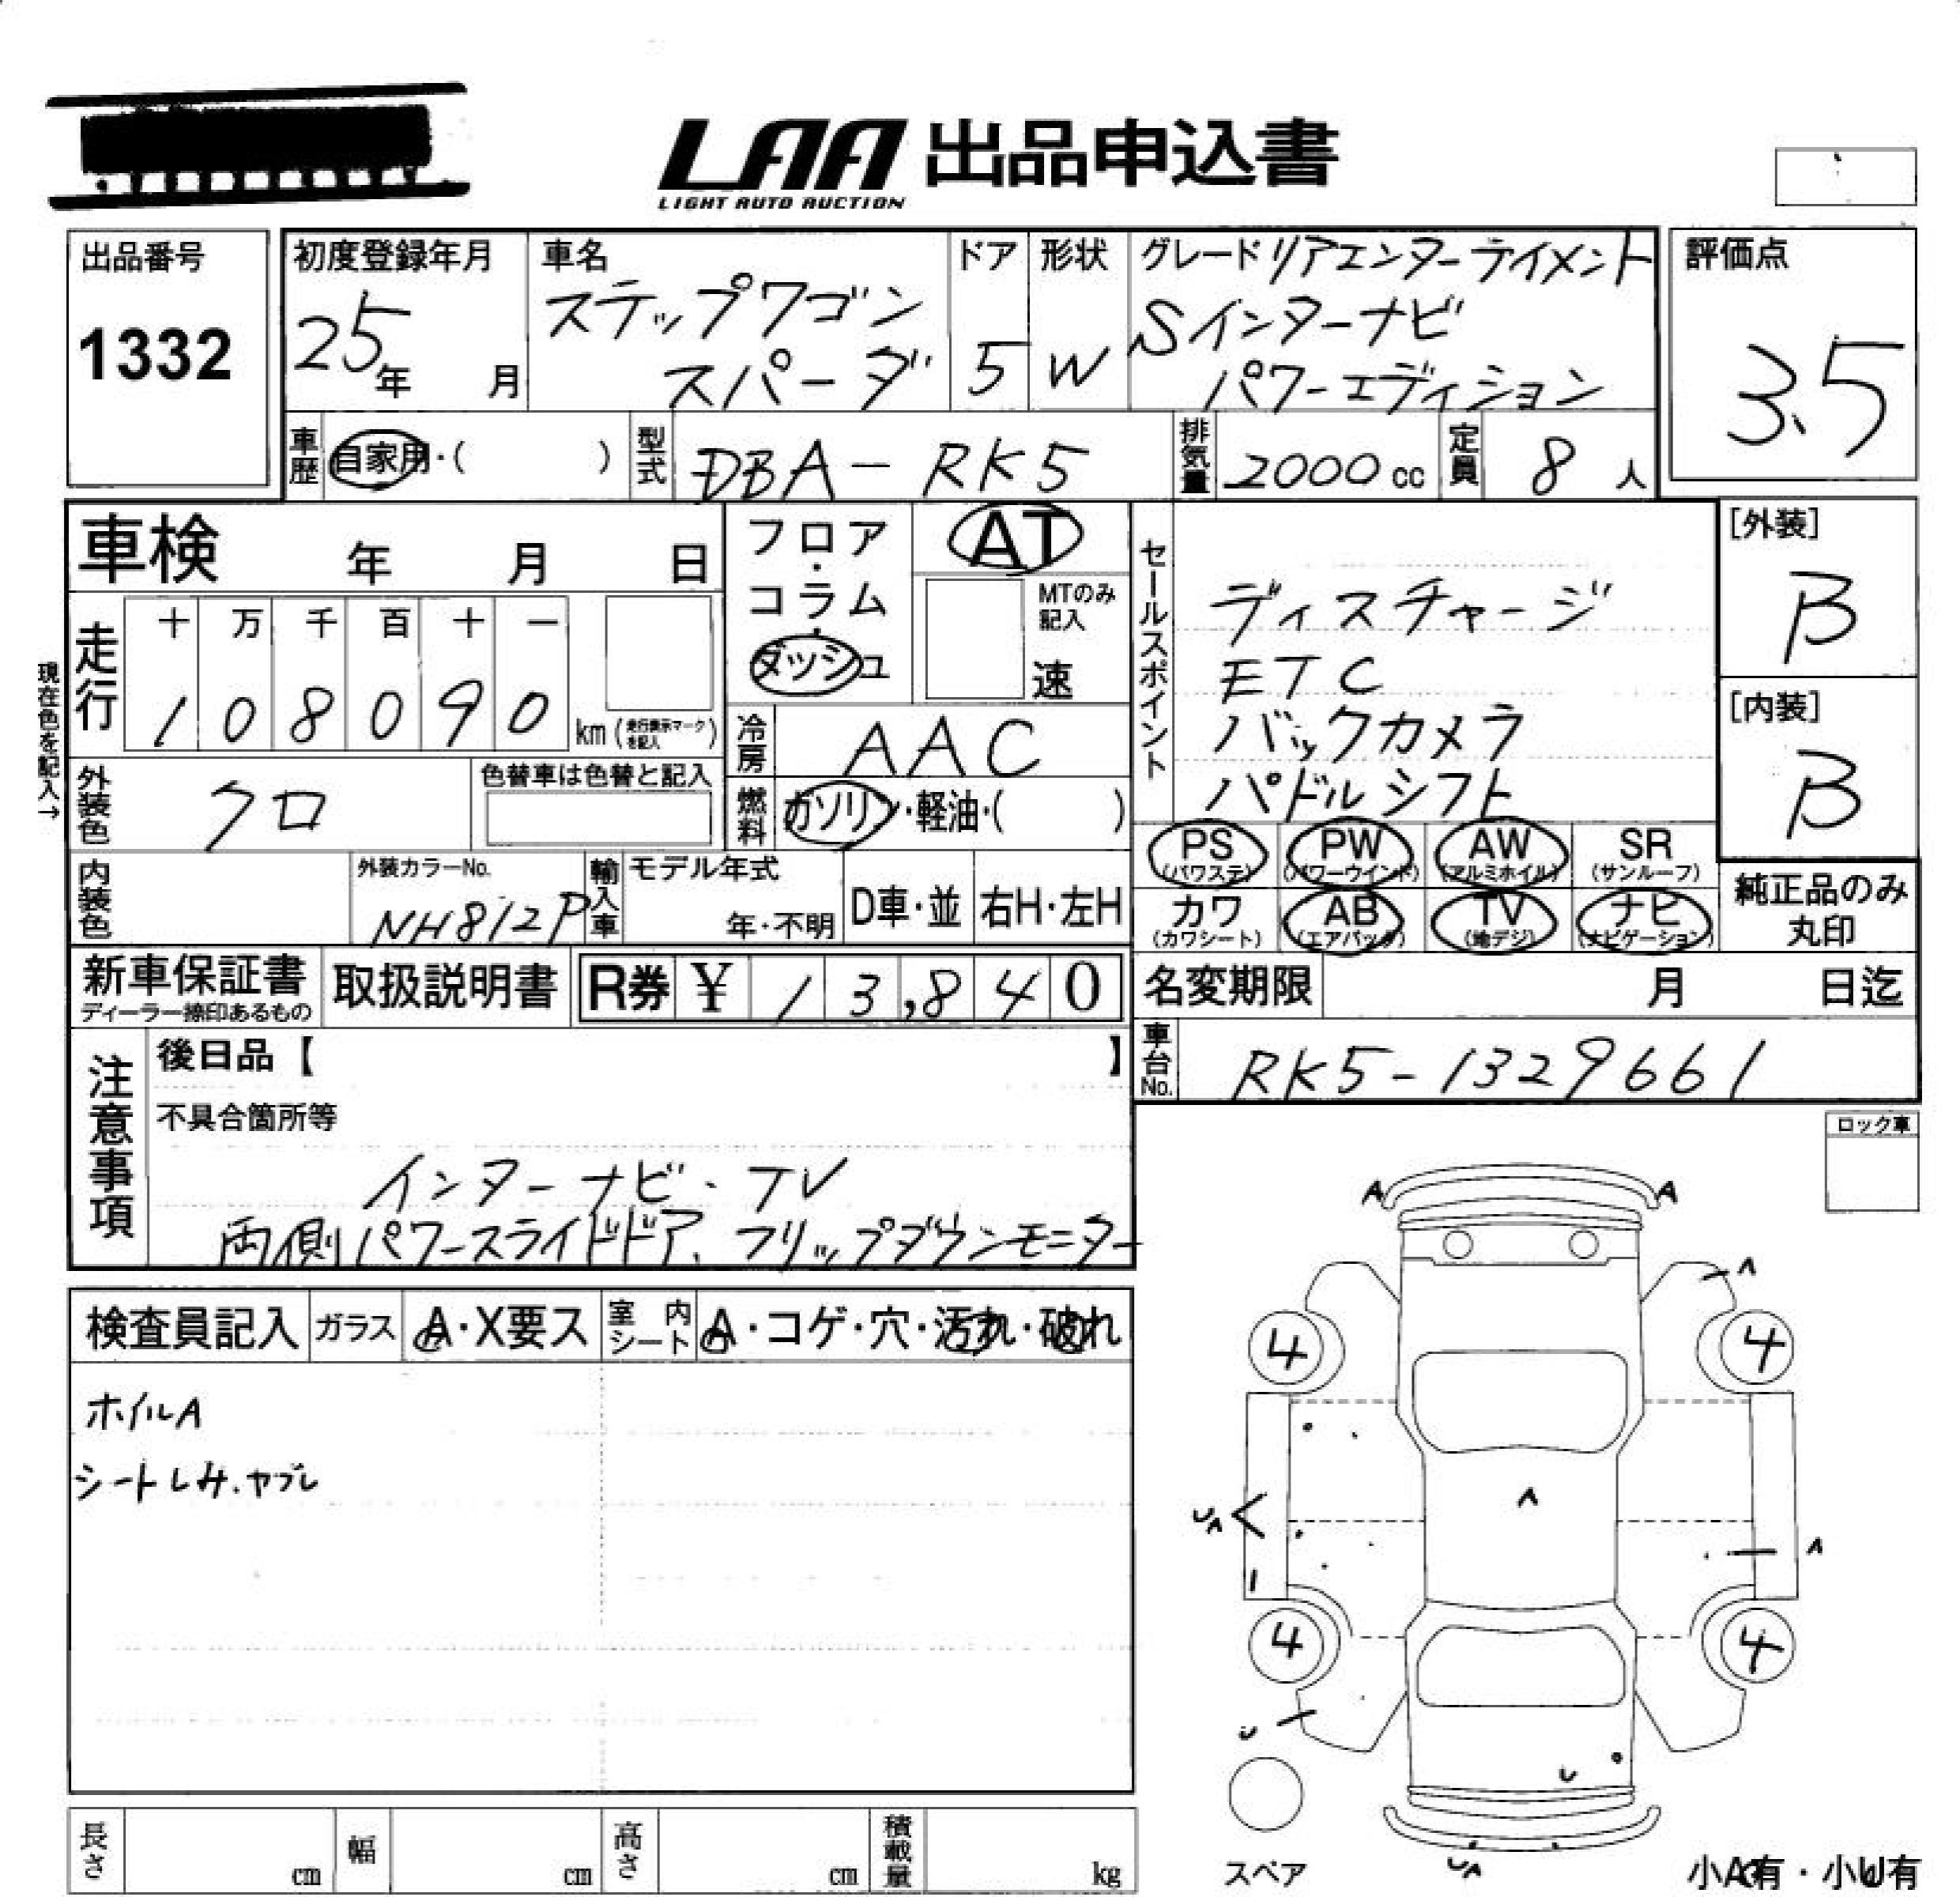 LAA 出品申込書
LIGHT AUTO AUCTION
出品番号
1332
初度登録年月
25年 月
車名
ステップワゴン
スパーダ
ドア
5
形状
W
グレード リアエンターテイメント
Sインターナビ
パワーエディション
評価点
3.5
車歴 自家用・( )
型式 DBA-RK5
排気量 2000cc
定員 8人
車検 年 月 日
フロア・コラム・ダッシュ
AT
MTのみ記入
速
セールスポイント
ディスチャージ
ETC
バックカメラ
パドルシフト
[外装]
B
[内装]
B
現在色を記入→
走行 十 万 千 百 十 一
1 0 8 0 9 0 km (走行表示マークを記入)
冷房 AAC
燃料 ガソリン・軽油・( )
外装色 クロ
色替車は色替と記入
内装色
外装カラーNo.
NH812P
輸入車
モデル年式
年・不明
D車・並
右H・左H
PS (パワステ)
PW (パワーウインド)
AW (アルミホイル)
SR (サンルーフ)
カワ (カワシート)
AB (エアバッグ)
TV (地デジ)
ナビ (ナビゲーション)
純正品のみ
丸印
新車保証書
ディーラー捺印あるもの
取扱説明書
R券 ¥ 13,840
名変期限 月 日迄
車台No. RK5-1329661
注意事項
後日品【 】
不具合箇所等
インターナビ・TV
両側パワースライドドア、フリップダウンモニター
ロック車
検査員記入
ガラス A・X要ス
室内シート A・コゲ・穴・汚れ・破れ
ホイルA
シートシミ・ヤブレ
A A
A
4 4
A
UA
A
4 4
U
U
UA
スペア
小A有・小U有
長さ cm
幅 cm
高さ cm
積載量 kg